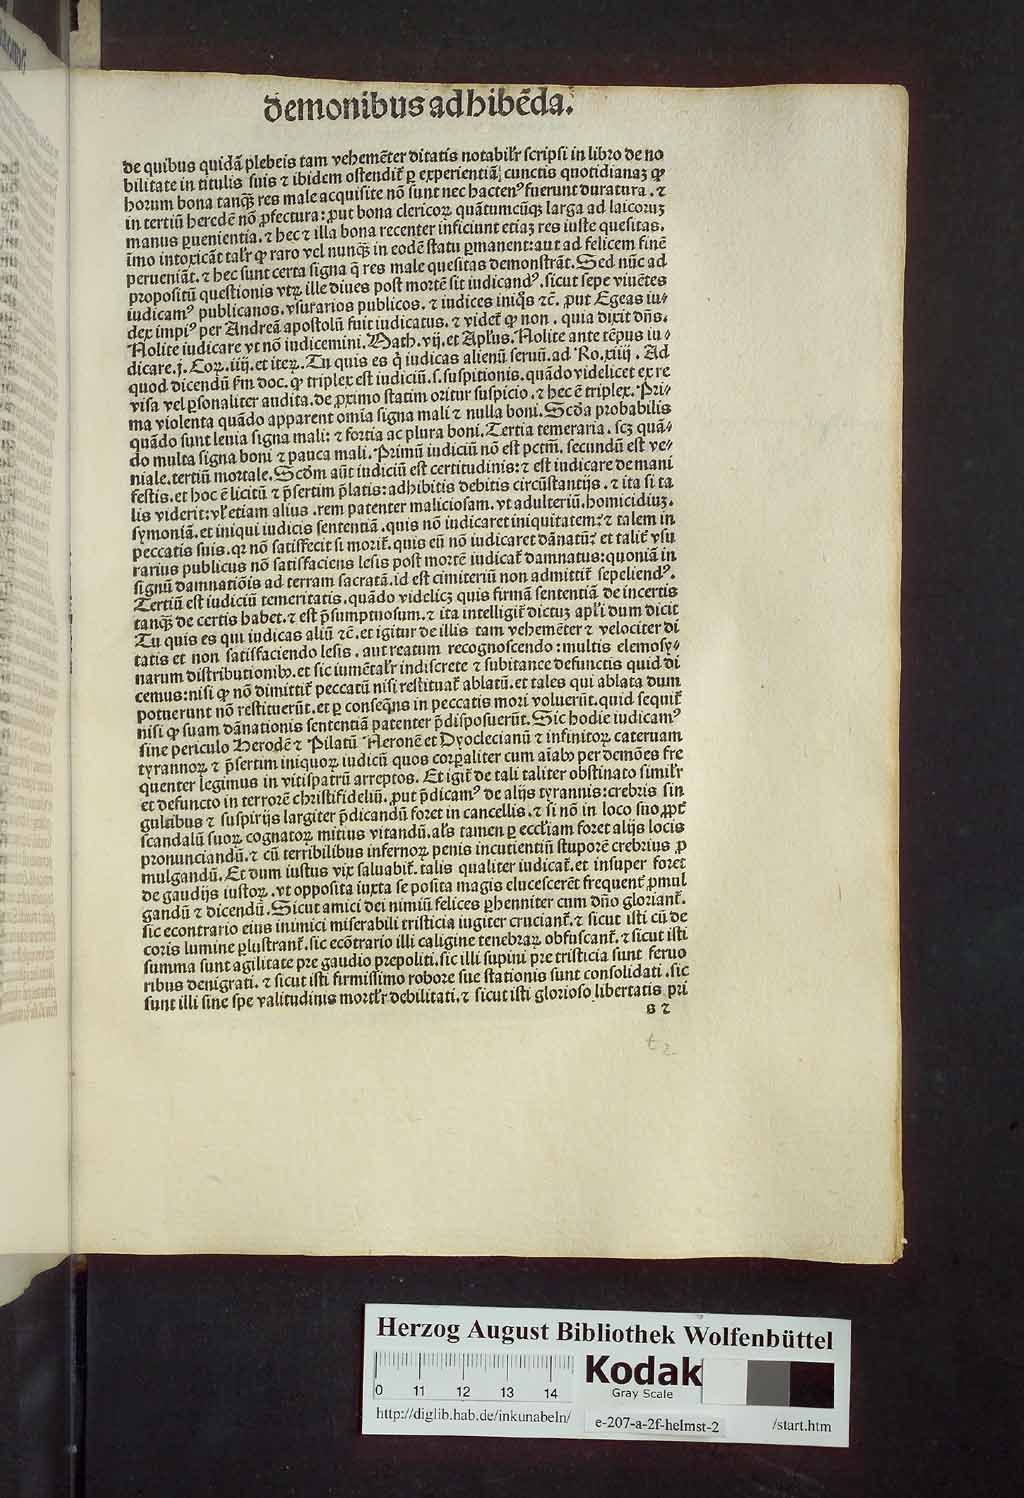 demonibus adhibēda.
de quibus quidā plebeis tam vehemēter ditatis notabilr̄ scripsi in libro de no
bilitate in titulis suis ⁊ ibidem ostendit̄ ꝑ experientiā cunctis quotidianaꝫ ꝙ
horum bona tanqꝫ res male acquisite nō sunt nec hactenꝰ fuerunt duratura. ⁊
in tertiū heredē nō ꝓfectura: ꝓut bona clericoꝝ quātumcūqꝫ larga ad laicoruꝫ
manus ꝑuenientia. ⁊ hec ⁊ illa bona recenter inficiunt etiaꝫ res iuste quesitas.
īmo intoxicāt talr̄ ꝙ raro vel nunqꝫ in eodē statu ꝑmanent: aut ad felicem finē
perueniāt. ⁊ hec sunt certa signa q̄ res male quesitas demonstrāt. Sed nūc ad
propositū questionis vtꝝ ille diues post mortē sit iudicandꝰ. sicut sepe viuētes
iudicamꝰ publicanos. vsurarios publicos. ⁊ iudices iniq̊s ⁊c̄. ꝓut Egeas iu⸗
dex impiꝰ per Andreā apostolū fuit iudicatus. ⁊ videt̄ ꝙ non. quia dixit dn̄s.
Nolite iudicare vt nō iudicemini. Math. vij. et Apl̄us. Nolite ante tēpus iu⸗
dicare. j. Coꝝ. iiij. et iteꝝ. Tu quis es q̇ iudicas alienū seruū. ad Ro. xiiij. Ad
quod dicendū ẜm doc. ꝙ triplex est iudiciū. s. suspitionis. quādo videlicet ex re
visa vel ꝑsonaliter audita. de ꝓximo statim oritur suspicio. ⁊ hec ē triplex. Pri⸗
ma violenta quādo apparent omīa signa mali ⁊ nulla boni. Scd̄a probabilis
quādo sunt leuia signa mali: ⁊ fortia ac plura boni. Tertia temeraria. scꝫ quā⸗
do multa signa boni ⁊ pauca mali. Primū iudiciū nō est pctm̄. secundū est ve⸗
niale. tertiū mortale. Scd̄m aūt iudiciū est certitudinis: ⁊ est iudicare de mani
festis. et hoc ē licitū ⁊ p̄sertim p̄latis: adhibitis debitis circūstantijs. ⁊ ita si ta
lis viderit: vl̄ etiam alius. rem patenter maliciosam. vt adulteriū. homicidiuꝫ.
symoniā. et iniqui iudicis sententiā. quis nō iudicaret iniquitatem? ⁊ talem in
peccatis suis. qꝛ nō satisfecit si morit̄. quis eū nō iudicaret dānatū? et talit̄ vsu
rarius publicus nō satisfaciens lesis post mortē iudicat̄ damnatus: quoniā in
signū damnatiōis ad terram sacratā. id est cimiteriū non admittit̄ sepeliendꝰ.
Tertiū est iudiciū temeritatis. quādo videlicꝫ quis firmā sententiā de incertis
tanqꝫ de certis habet. ⁊ est p̄sumptuosum. ⁊ ita intelligit̄ dictuꝫ apl̄i dum dicit
Tu quis es qui iudicas aliū ⁊c̄. et igitur de illis tam vehemēter ⁊ velociter di
tatis et non satisfaciendo lesis. aut reatum recognoscendo: multis elemosy⸗
narum distributionibꝰ. et sic iumētalr̄ indiscrete ⁊ subitance defunctis quid di
cemus: nisi ꝙ nō dimittit̄ peccatū nisi restituat̄ ablatū. et tales qui ablata dum
potuerunt nō restituerūt. et ꝑ conseq̄ns in peccatis mori voluerūt. quid sequit̄
nisi ꝙ suam dānationis sententiā patenter p̄disposuerūt. Sic hodie iudicamꝰ
sine periculo Herodē ⁊ Pilatū Neronē et Dyoclecianū ⁊ infinitoꝝ cateruam
tyrannoꝝ ⁊ p̄sertim iniquoꝝ iudicū quos corꝑaliter cum aīabꝰ per demōes fre
quenter legimus in vitispatrū arreptos. Et igit̄ de tali taliter obstinato similr̄
et defuncto in terrorē christifideliū. ꝓut p̄dicamꝰ de alijs tyrannis: crebris sin
gultibus ⁊ suspirijs largiter p̄dicandū foret in cancellis. ⁊ si nō in loco suo ꝓpt̄
scandalū suoꝝ cognatoꝝ mitius vitandū. al̄s tamen ꝑ eccl̄iam foret alijs locis
pronunciandū. ⁊ cū terribilibus infernoꝝ penis incutientiū stuporē crebrius ꝓ
mulgandū. Et dum iustus vix saluabit̄. talis qualiter iudicat̄. et insuper foret
de gaudijs iustoꝝ. vt opposita iuxta se posita magis elucescerēt frequent̄ ꝓmul
gandū ⁊ dicendū. Sicut amici dei nimiū felices ꝑhenniter cum dn̄o gloriant̄.
sic econtrario eius inimici miserabili tristicia iugiter cruciant̄. ⁊ sicut isti cū de
coris lumine ꝑlustrant̄. sic ecōtrario illi caligine tenebraꝝ obfuscant̄. ⁊ sicut isti
summa sunt agilitate pre gaudio prepoliti. sic illi supini pre tristicia sunt feruo
ribus denigrati. ⁊ sicut isti firmissimo robore sue stationis sunt consolidati. sic
sunt illi sine spe valitudinis mortl̄r debilitati. ⁊ sicut isti glorioso libertatis pri
s 2
t 2
Herzog August Bibliothek Wolfenbüttel
0 11 12 13 14
Kodak
Gray Scale
http://diglib.hab.de/inkunabeln/ e-207-a-2f-helmst-2 /start.htm